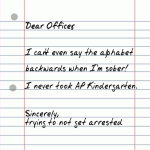 Dear Offices
I can't even say the alphabet
backwards when I'm sober!
I never took AP Kindergarten.
Sincerely,
trying to not get arrested